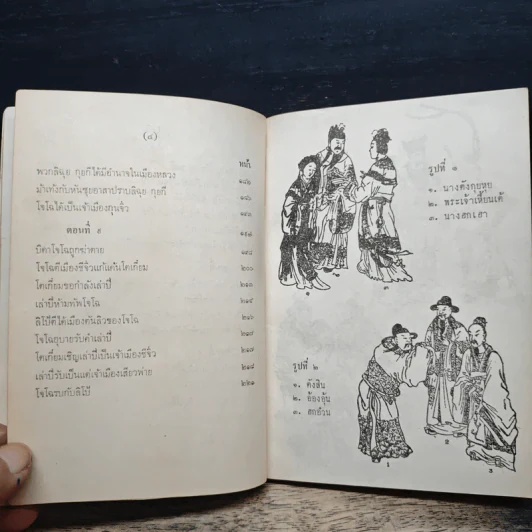 (๔)
หน้า
พวกลิฉุย กุยกีได้มีอำนาจในเมืองหลวง ๑๘๒
ม้าเท้งกับหันซุยอาสาปราบลิฉุย กุยกี
โจโฉได้เป็นเจ้าเมืองกุนจิ๋ว
ตอนที่ ๙
บิดาโจโฉถูกฆ่าตาย ๑๙๘
โจโฉตีเมืองชีจิ๋วแก้แค้นโตเกี๋ยม ๒๐๐
โตเกี๋ยมขอกำลังเล่าปี่ ๒๑๐
เล่าปี่ห้ามทัพโจโฉ ๒๑๕
ลิโป้ตีได้เมืองกันลิวของโจโฉ ๒๑๖
โจโฉอุบายรับคำเล่าปี่ ๒๑๗
โตเกี๋ยมเชิญเล่าปี่เป็นเจ้าเมืองชีจิ๋ว ๒๑๘
เล่าปี่รับเป็นแต่เจ้าเมืองเสียวพ่าย ๒๒๑
โจโฉรบกับลิโป้
รูปที่ ๑
๑. นางตังกุยหุย
๒. พระเจ้าเหี้ยนเต้
๓. นางฮกเฮา
๒ ๓
รูปที่ ๒
๑. ตังสิน
๒. อ้องอุ้น
๓. ฮกอ้วน
1 2 3